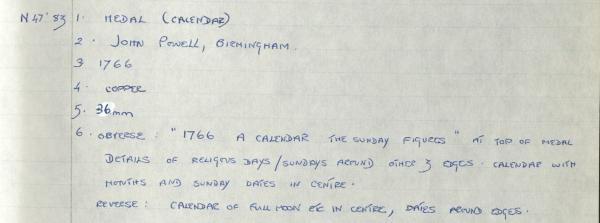 N47'83 1. MEDAL (CALENDAR)
2. JOHN POWELL, BIRMINGHAM.
3 1766
4. COPPER
5. 36mm
6. OBVERSE: "1766 A CALENDAR THE SUNDAY FIGURES" AT TOP OF MEDAL
DETAILS OF RELIGOUS DAYS/SUNDAYS AROUND OTHER 3 EDGES. CALENDAR WITH
MONTHS AND SUNDAY DATES IN CENTRE.
REVERSE: CALENDAR OF FULL MOON ETC IN CENTRE, DATES AROUND EDGES.